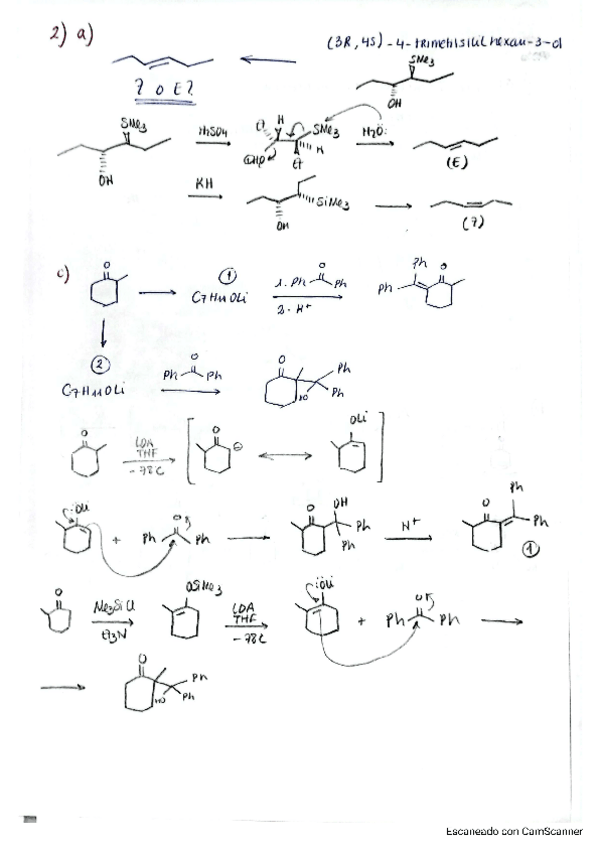 2) a)
(3R, 4S) - 4 - trimetilsililhexan-3-ol
SMe3
OH
Z o E?
SMe3
OH
H2SO4
Et
H
SMe3
H
Et
H2Ö:
(E)
KH
SiMe3
OH
(Z)
c)
O
①
C7H11OLi
1. Ph O Ph
2. H+
Ph
O
Ph
②
C7H11OLi
O
Ph Ph
O
Ph
Ph
HO
O
LDA
THF
-78C
O
⊖
OLi
:OLi
+
O
Ph Ph
O
OH
Ph
Ph
H+
Ph
O
Ph
①
O
Me3SiCl
Et3N
OSiMe3
LDA
THF
-78C
:OLi
+
O
Ph Ph
O
Ph
Ph
HO
Escaneado con CamScanner